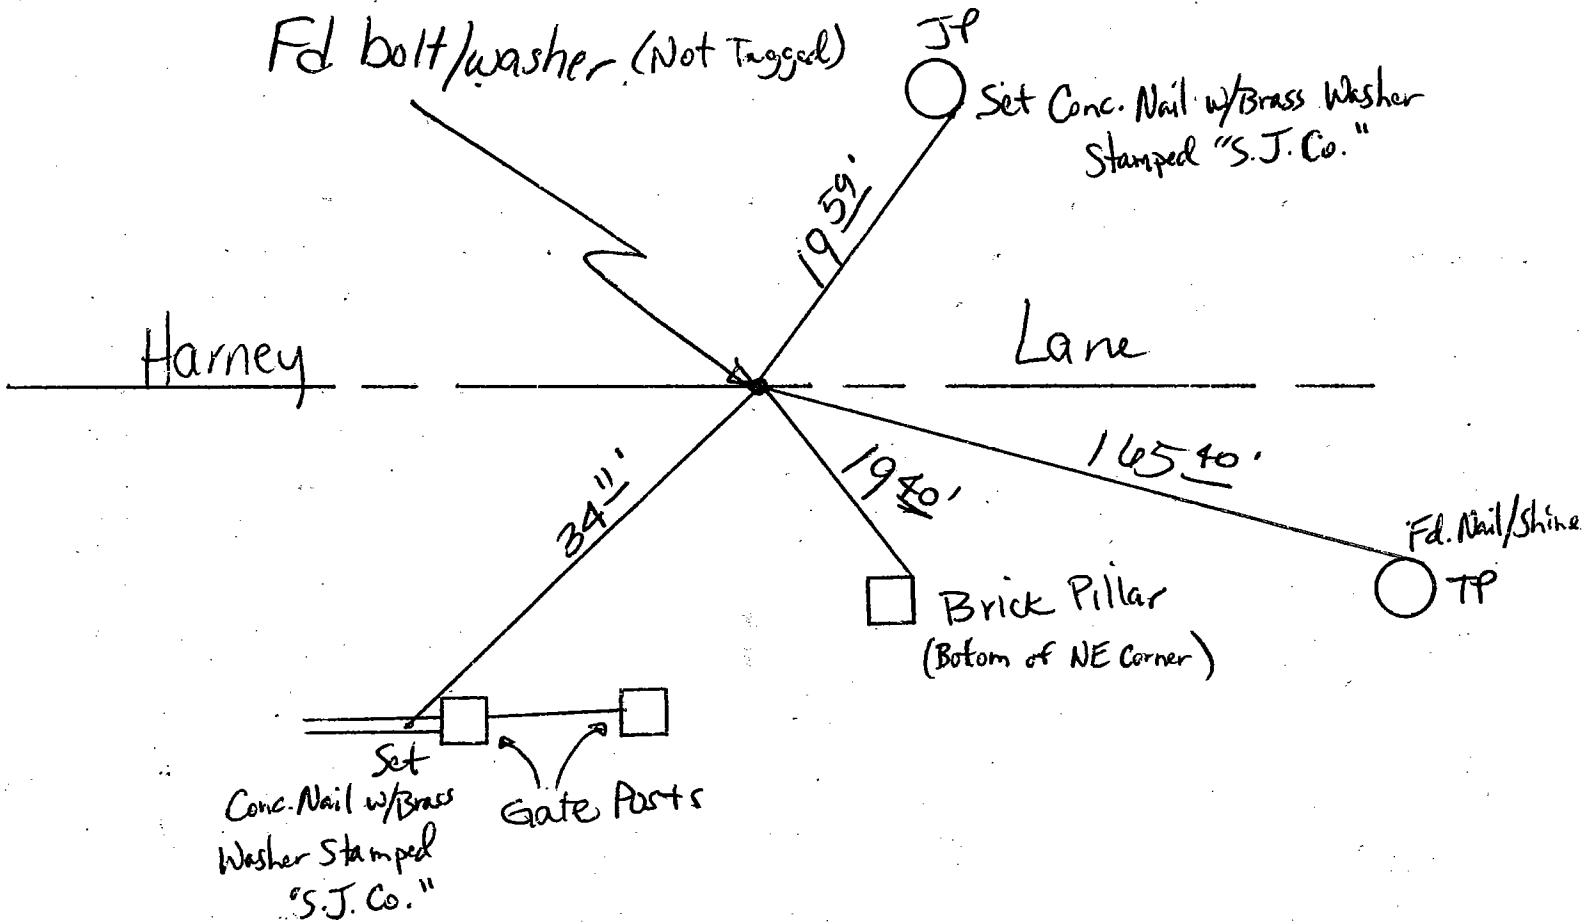 Fd bolt/washer (Not Tagged)
JP
Set Conc. Nail w/Brass Washer
Stamped "S.J. Co."
19 59'
Harney Lane
165 40'
19 40'
34 11'
Fd. Nail/Shine
TP
Brick Pillar
(Botom of NE Corner)
Set
Conc. Nail w/Brass
Washer Stamped
"S.J. Co."
Gate Posts